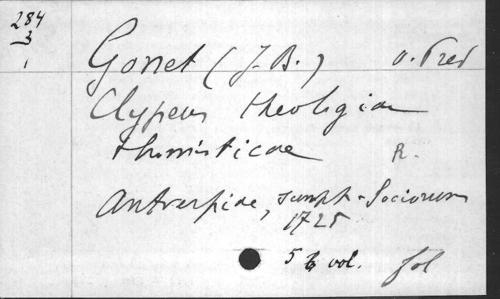 284
3
1
Gonet (J. B.) o. Pred
Clypeus theologiae
thomisticae R.
Antverpiae, sumpt. Sociorum
1725
5 vol. fol